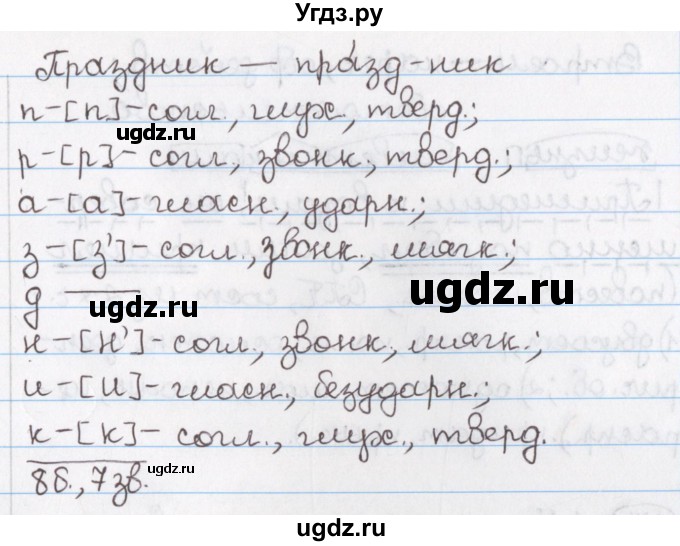 Угдз.ру
Праздник — пра́зд-ник
п-[п]-согл., глух., тверд.;
ugdz.ru
р-[р]- согл., звонк., тверд.;
а-[а]-гласн., ударн.;
з-[з']- согл., звонк., мягк.;
ugdz.ru
д ——
ugdz.ru
н-[н']-согл., звонк., мягк.;
и-[и]-гласн., безударн.;
ugdz.ru
к-[к]- согл., глух., тверд.
8б., 7зв.
ugdz.ru
ugdz.ru